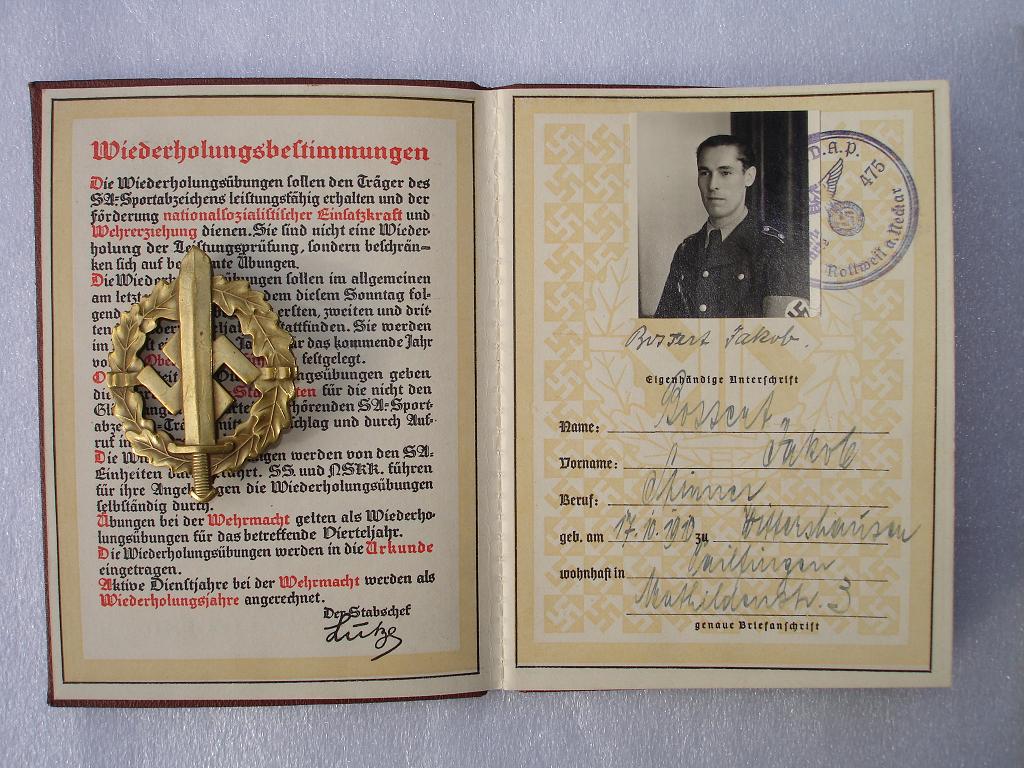 Wiederholungsbestimmungen
Die Wiederholungsübungen sollen den Träger des
SA-Sportabzeichens leistungsfähig erhalten und der
Förderung nationalsozialistischer Einsatzkraft und
Wehrerziehung dienen. Sie sind nicht eine Wieder-
holung der Leistungsprüfung, sondern beschrän-
ken sich auf Übungen.
übungen sollen im allgemeinen
am dem diesem Sonntag fol-
ersten, zweiten und drit-
ten stattfinden. Sie werden
im das kommende Jahr
festgelegt.
geben
die für die nicht den
SA-Sport-
und durch Auf-
ruf
Die werden von den SA-
Einheiten SS. und NSKK. führen
für ihre die Wiederholungsübungen
selbständig durch.
Übungen bei der Wehrmacht gelten als Wiederho-
lungsübungen für das betreffende Vierteljahr.
Die Wiederholungsübungen werden in die Urkunde
eingetragen.
Aktive Dienstjahre bei der Wehrmacht werden als
Wiederholungsjahre angerechnet.
Der Stabschef
Lutze
D.A.P.
475
Rottweil a. Neckar
Bossert Jakob.
Eigenhändige Unterschrift
Name: Bossert
Vorname: Jakob
Beruf:
geb. am 17. 10. zu Wittershausen
wohnhaft in Tailfingen
Mathildenstr. 3
genaue Briefanschrift